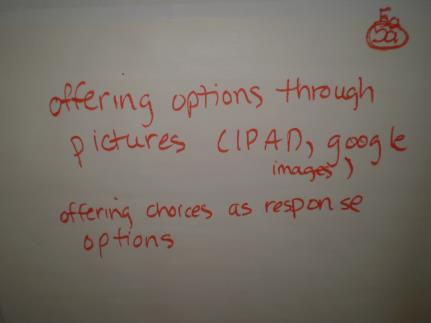 5a
offering options through
pictures (IPAD, google
images,)
offering choices as response
options